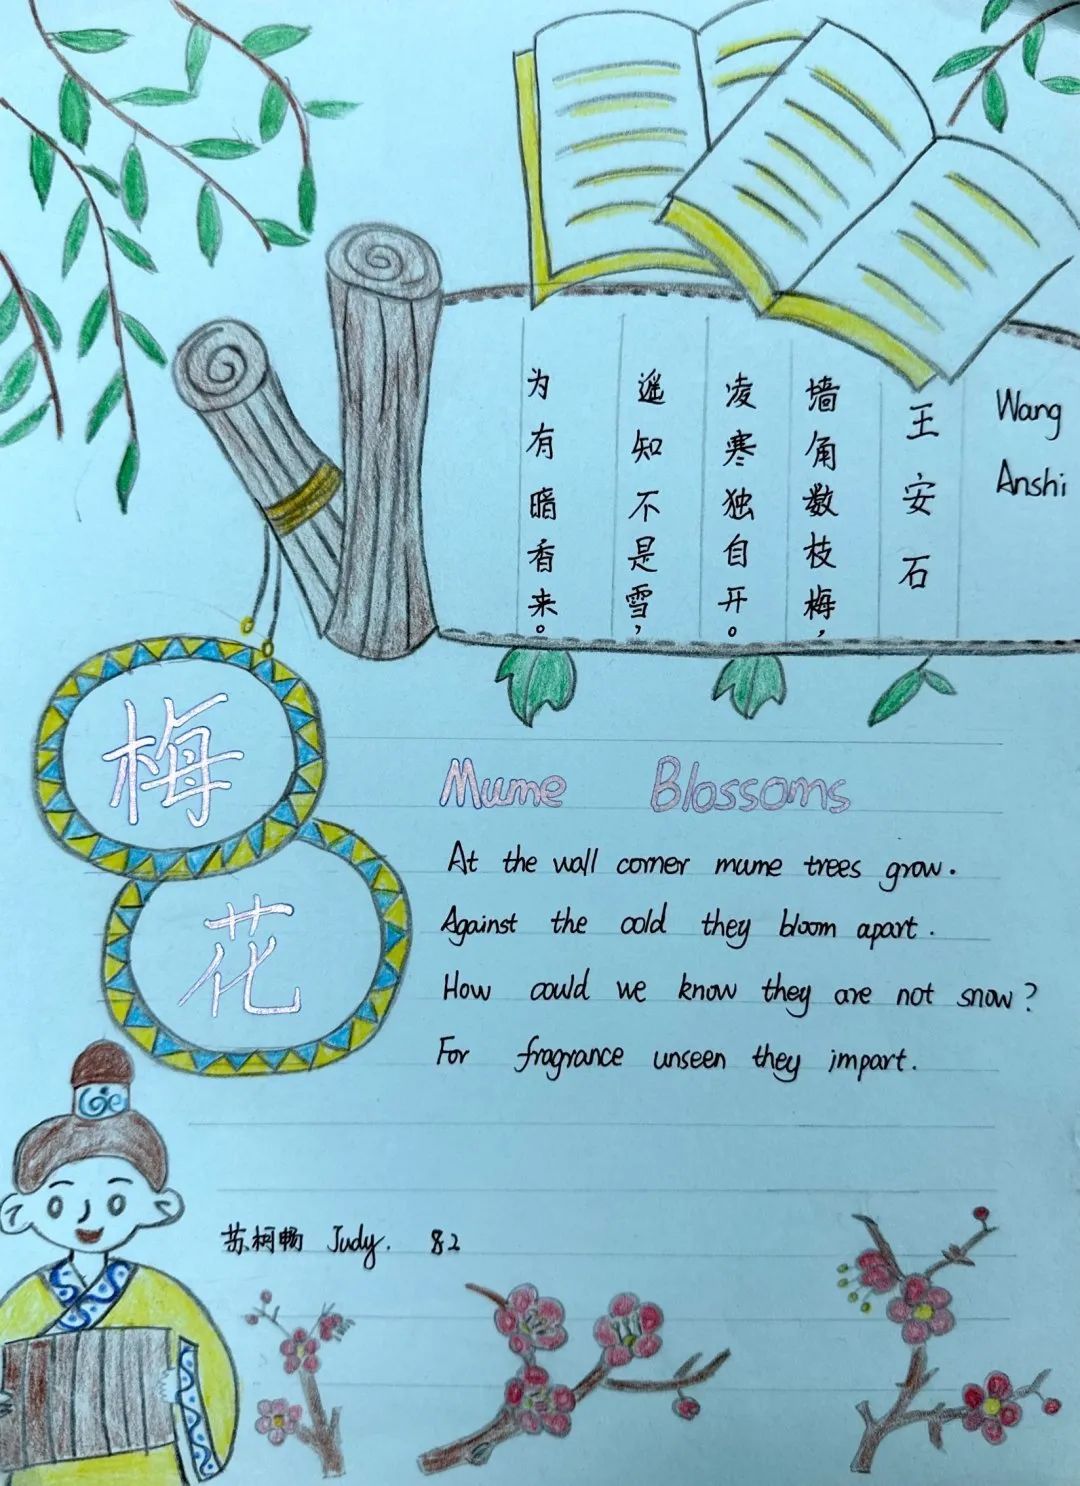 Wang
Anshi
王安石
墙角数枝梅，
凌寒独自开。
遥知不是雪，
为有暗香来。
梅
花
Mume Blossoms
At the wall corner mume trees grow.
Against the cold they bloom apart.
How could we know they are not snow?
For fragrance unseen they impart.
苏柯畅 Judy. 82